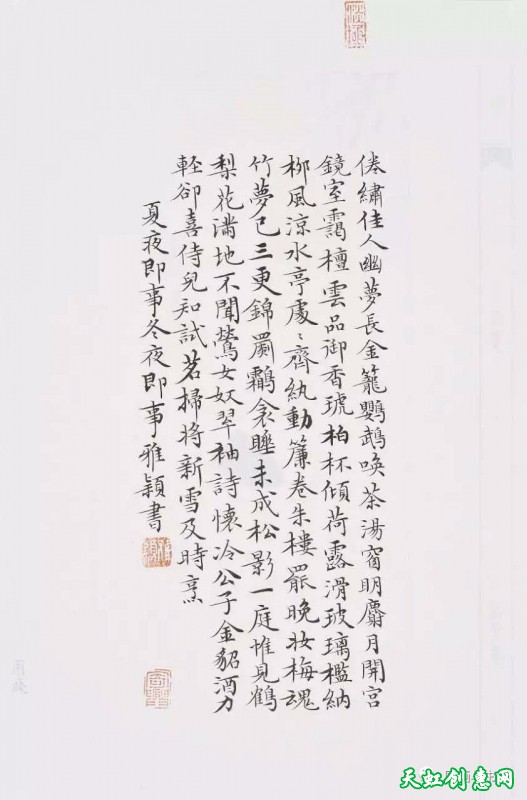 倦繡佳人幽夢長金籠鸚鵡喚茶湯窗明麝月開宮
鏡室靄檀雲品御香琥珀杯傾荷露滑玻璃檻納
柳風涼水亭處〻齊紈動簾卷朱樓罷晚妝梅魂
竹夢已三更錦罽鸘衾睡未成松影一庭惟見鶴
梨花滿地不聞鶯女奴翠袖詩懷冷公子金貂酒力
輕卻喜侍兒知試茗掃將新雪及時烹
夏夜即事冬夜即事雅穎書
天虹创意网